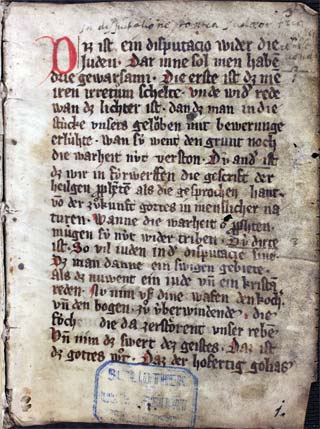 Dz ist ein disputacio wider die
iuden. Dar inne sol men habe
drie gewarsami. Die erste ist dz me
iren irretum schelte. vnde wid rede
wan dz lichter ist. dan dz man in die
stücke vnsers gelöben mit bewerunge
erlühte. wan sy went den grunt noch
die warheit nüt verston. Dü and ist
dz wir in fürwerffen die gescrift der
heilgen als die gesprochen hant.
vō der zůkunft gottes in menslicher na
turen. Wanne die warheit
mugen sü nüt wider triben. Dü dirte
ist. So vil iuden ind disputacie sint
Dz man danne ein swigen gebiete.
als dz nuwent ein iude vñ ein kristā
reden. Nu nim vf dine wafen den koch
vñ den bogen. zü überwindende. die
föch die da zerstörent vnser rebe
Vñ nim dz swert dez geistes. Daz ist
dz gottes Daz der hofertig golias
1.